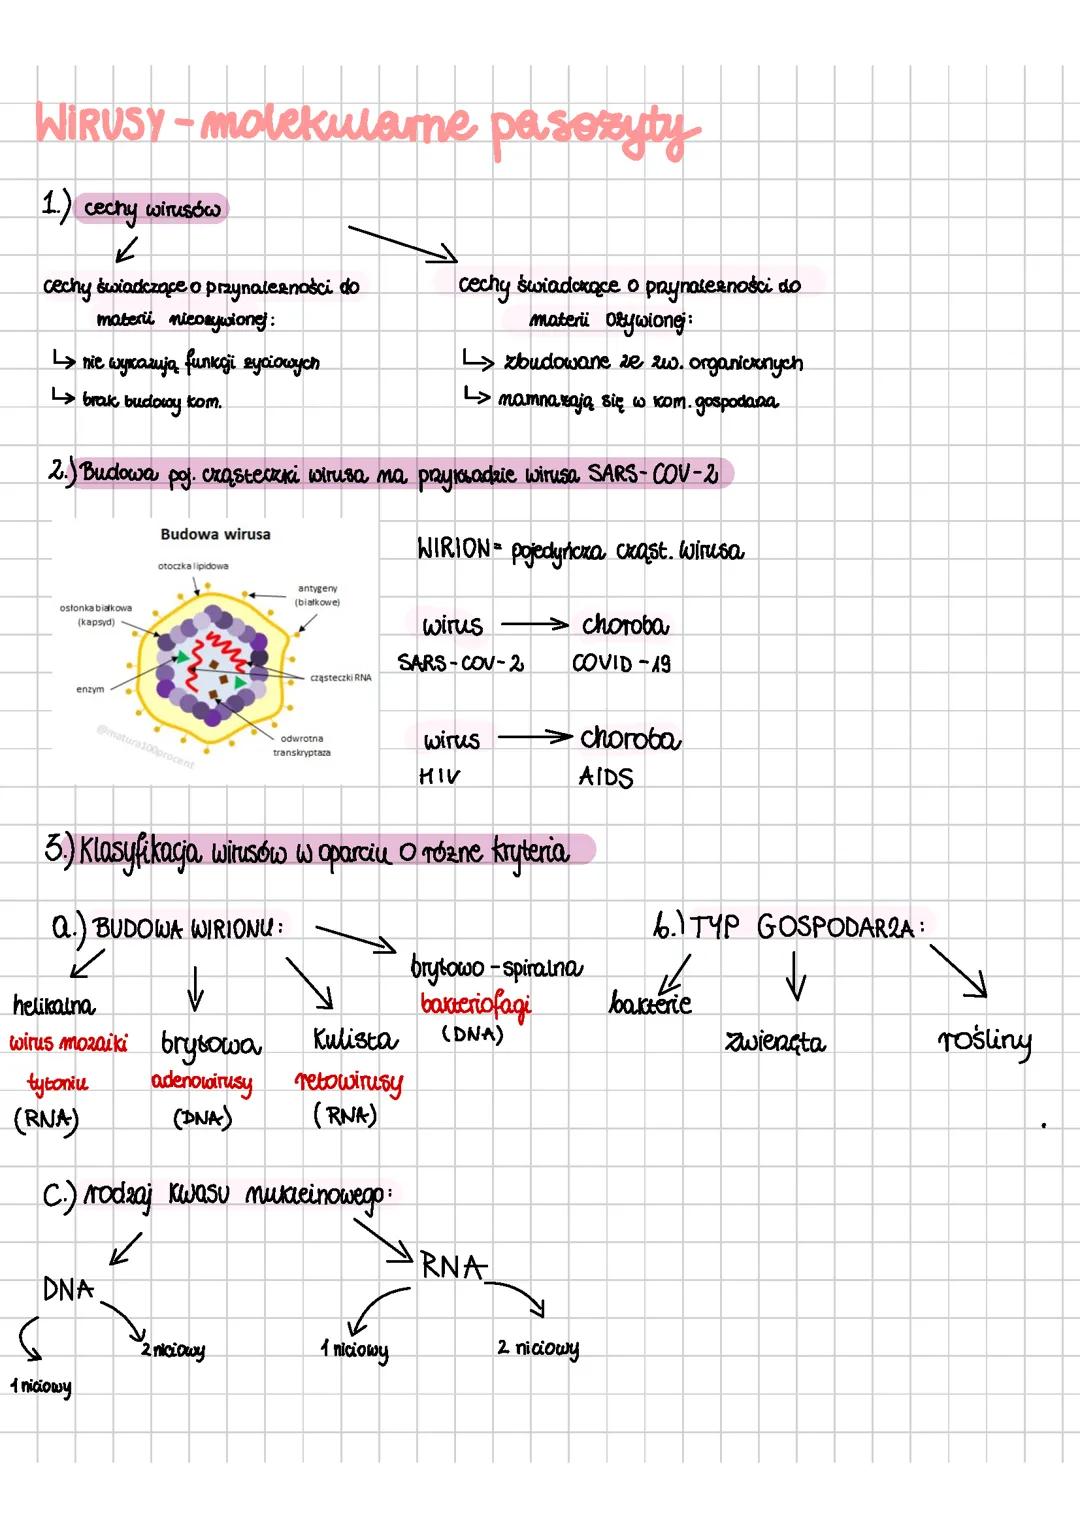 WIRUSY - molekularne pasożyty
1.) cechy wirusów
cechy świadczące o przynależności do
materii nieożywionej:
↳ nie wykazują funkcji życiowych
↳ brak budowy kom.
cechy świadczące o przynależności do
materii ożywionej:
↳ zbudowane ze zw. organicznych
↳ namnażają się w kom. gospodarza
2.) Budowa poj. cząsteczki wirusa na przykładzie wirusa SARS-COV-2
Budowa wirusa
otoczka lipidowa
antygeny
(białkowe)
osłonka białkowa
(kapsyd)
cząsteczki RNA
enzym
odwrotna
transkryptaza
@matura100procent
WIRION = pojedyńcza cząst. wirusa
wirus → choroba
SARS-COV-2 COVID-19
wirus → choroba
HIV AIDS
3.) Klasyfikacja wirusów w oparciu o różne kryteria
a.) BUDOWA WIRIONU:
helikalna
wirus mozaiki
tytoniu
(RNA)
bryłowa
adenowirusy
(DNA)
Kulista
retowirusy
(RNA)
bryłowo-spiralna
bakteriofagi
(DNA)
b.) TYP GOSPODARZA:
bakterie
zwierzęta
rośliny
c.) rodzaj kwasu nukleinowego:
DNA
1 niciowy
2 niciowy
RNA
1 niciowy
2 niciowy